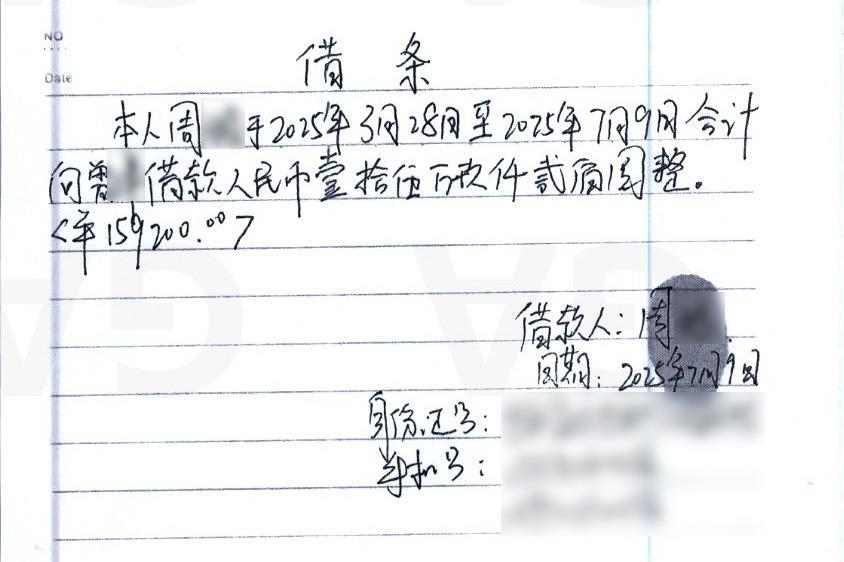 NO
Date
借 条
本人周 于2025年3月28日至2025年7月9日合计
向曾 借款人民币壹拾伍万玖仟贰佰圆整。
<¥159200.00>
借款人: 周
日期: 2025年7月9日
身份证号:
手机号: